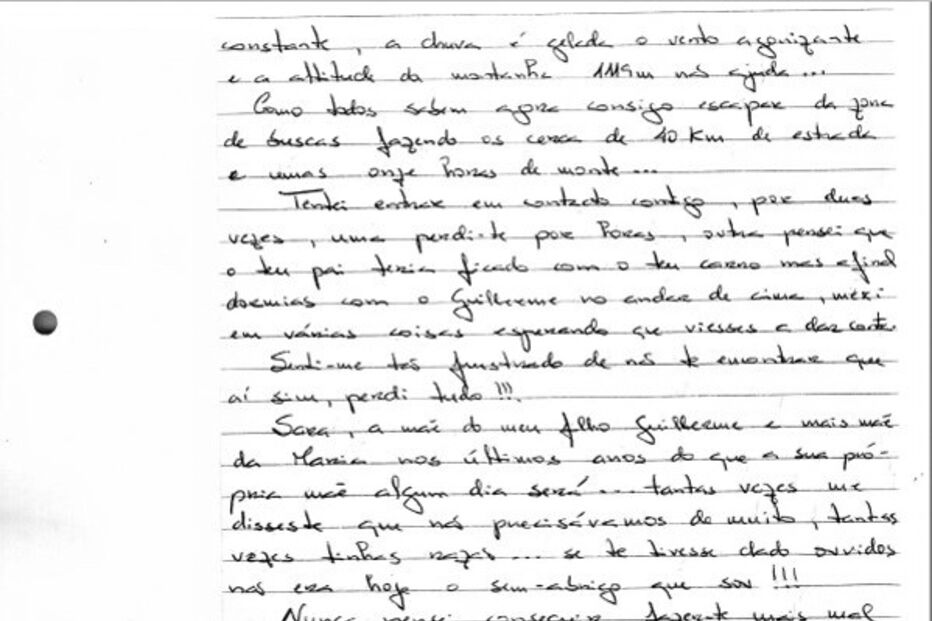 constante, a chuva é gelada o vento agonizante
e a altitude da montanha 1119m não ajuda...
Como todos sabem agora consigo escapar da zona
de buscas fazendo os cerca de 40 Km de estrada
e umas onze horas de monte...
Tentei entrar em contacto contigo, por duas
vezes, uma perdi-te por horas, outra pensei que
o teu pai teria ficado com o teu carro mas afinal
dormias com o Guilherme no andar de cima, mexi
em várias coisas esperando que viesses a dar conta.
Senti-me tão frustrado de não te encontrar que
aí sim, perdi tudo!!!
Sara, a mãe do meu filho Guilherme e mais mãe
da Maria nos últimos anos do que a sua pró-
pria mãe algum dia será... tantas vezes me
disseste que não precisávamos de muito, tantas
vezes tinhas razão... se te tivesse dado ouvidos
não era hoje o sem-abrigo que sou!!!
Nunca pensei conseguir fazer-te mais mal